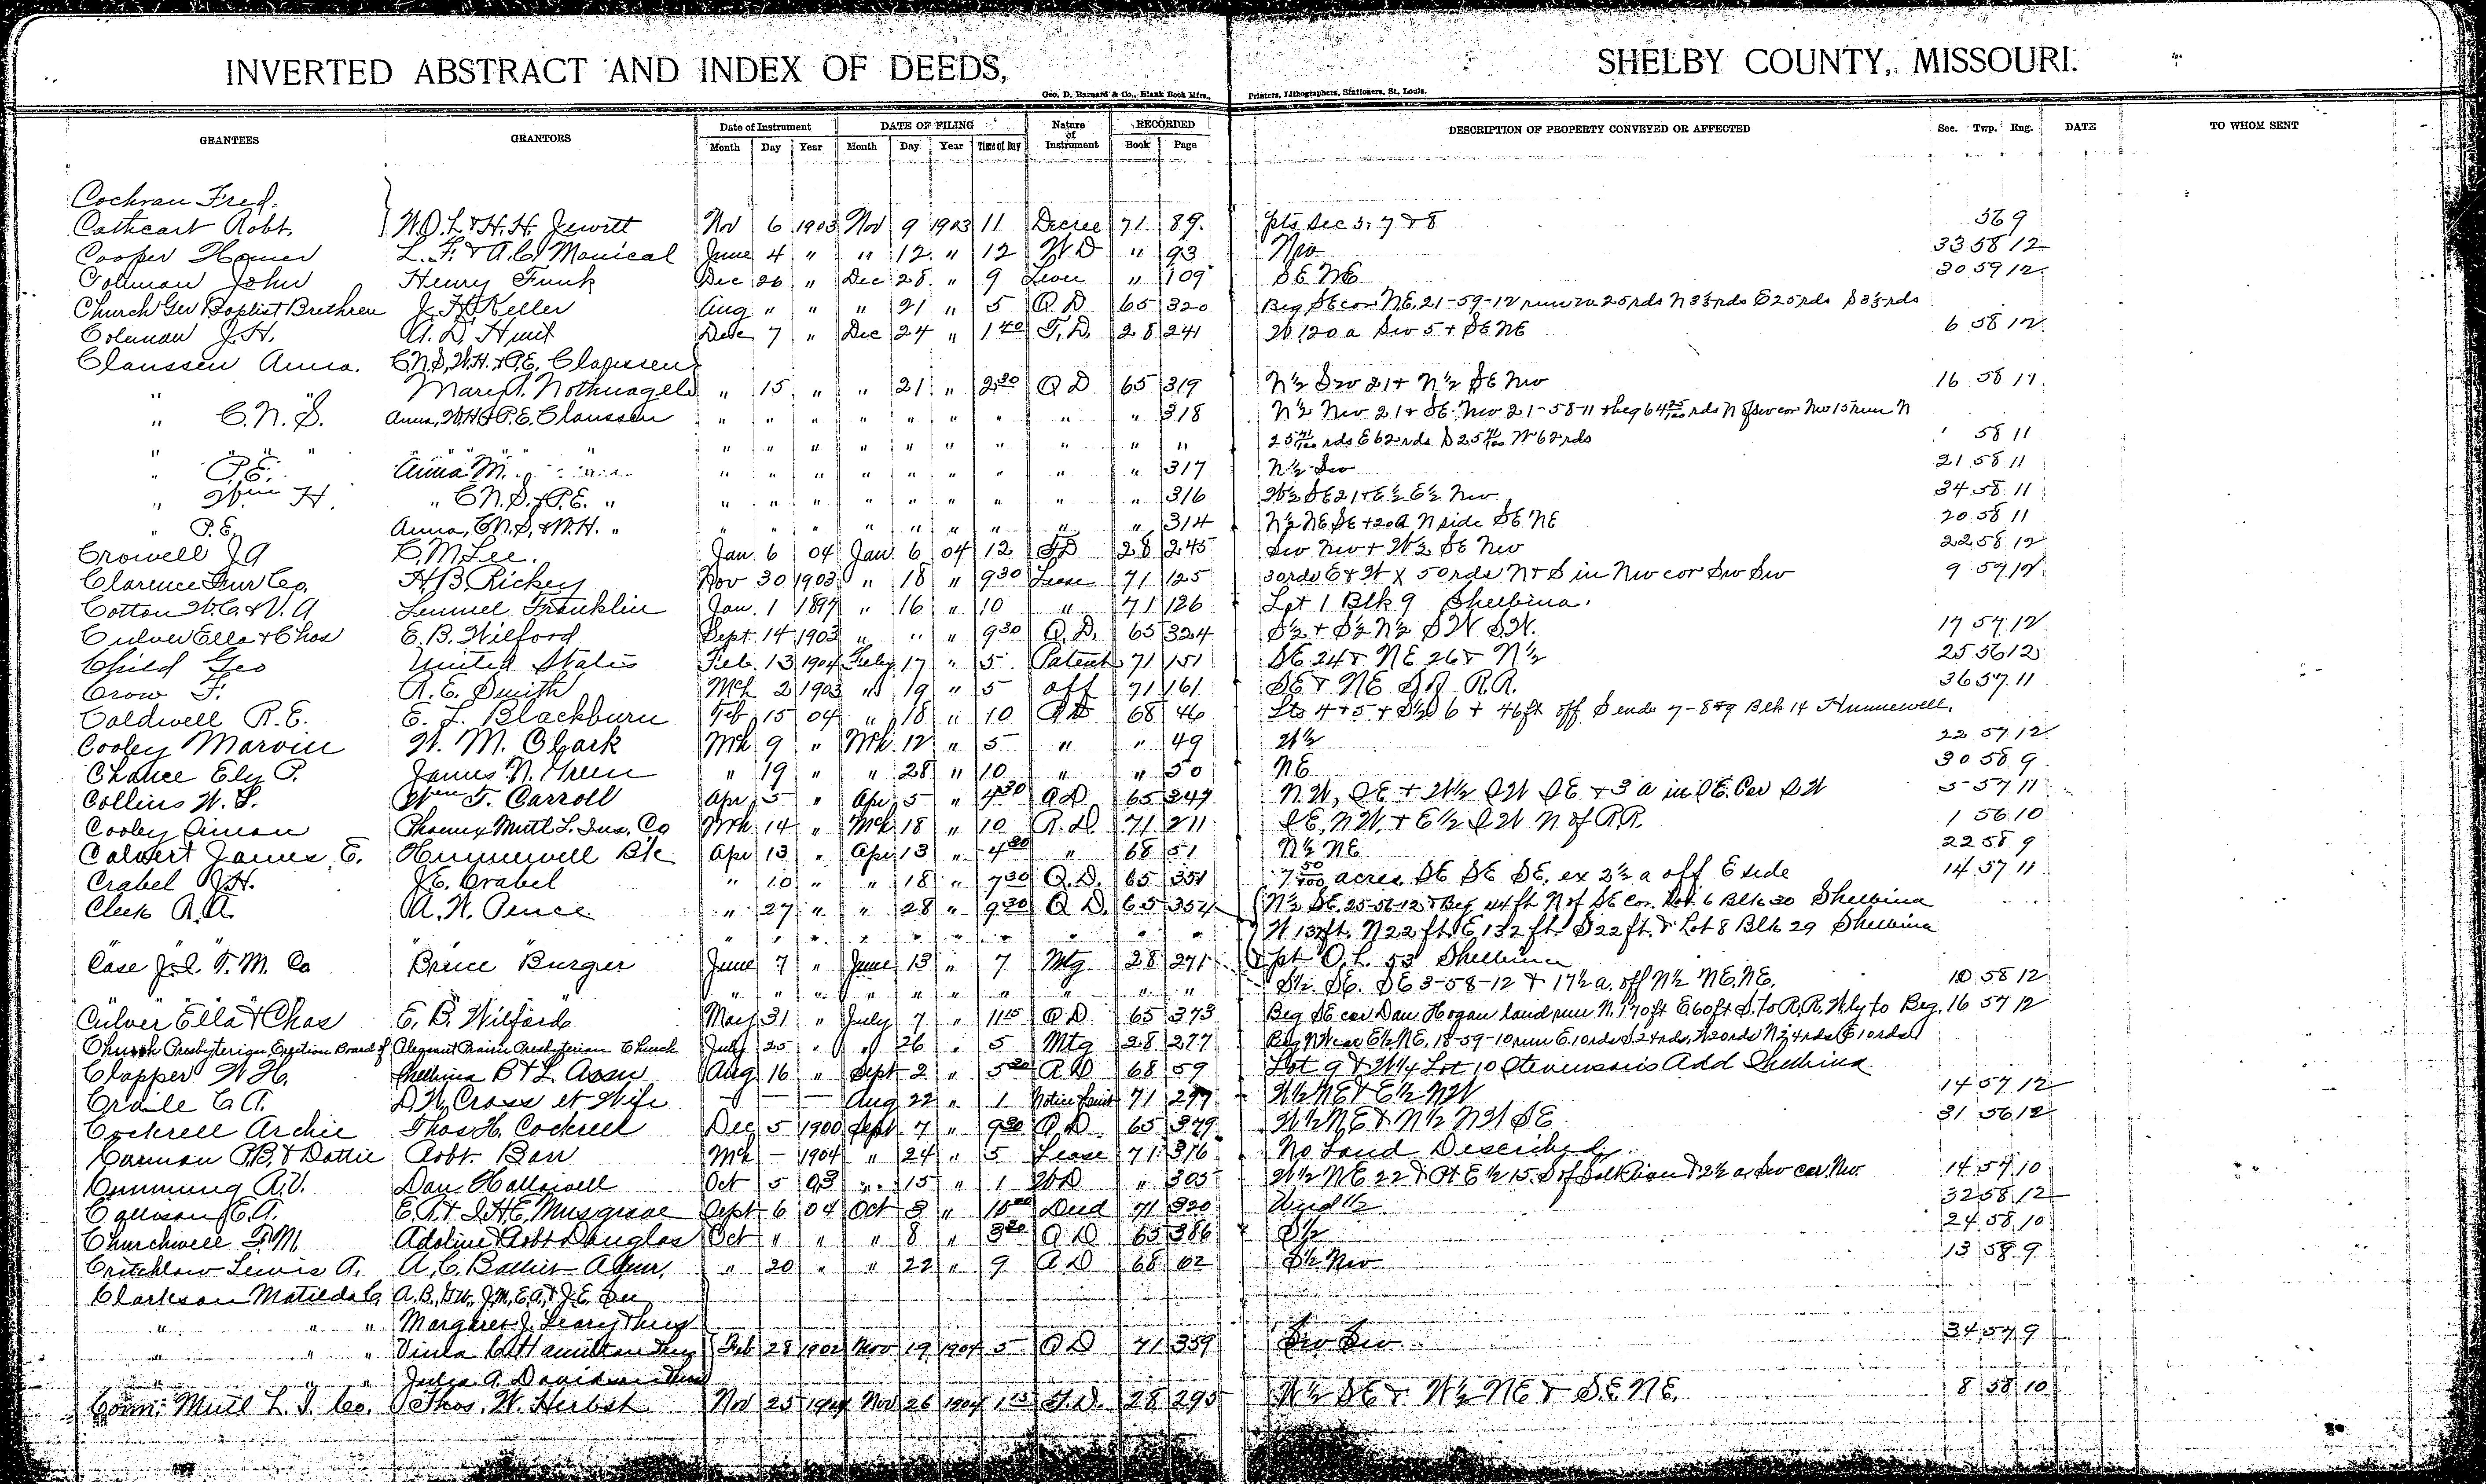 INVERTED ABSTRACT AND INDEX OF DEEDS, SHELBY COUNTY, MISSOURI.
Geo. D. Barnard & Co., Blank Book Mfrs., Printers, Lithographers, Stationers, St. Louis.
GRANTEES GRANTORS Date of Instrument DATE OF FILING Nature of Instrument RECORDED DESCRIPTION OF PROPERTY CONVEYED OR AFFECTED Sec. Twp. Rng. DATE TO WHOM SENT
Month Day Year Month Day Year Time of Day Book Page
Cochran Fred.
Cathcart Robt. W.O.L. & H.H. Jewitt Nov 6 1903 Nov 9 1903 11 Decree 71 89 pts Sec 5, 7 & 8 569
Cooper Homer L. F. & A. C. Monical June 4 " " 12 " 12 W D " 93 Nw 33 58 12
Colman John Henry Funk Dec 26 " Dec 28 " 9 " 109 SE NE 30 59 12
Church Ger Baptist Brethren J. H. Keller Aug " " " 21 " 5 Q D 65 320 Beg SE cor NE 21-59-12 run W 25 rds N 3½ rds E 25 rds S 3½ rds
Coleman J. H. A. D. Hunt Dec 7 " Dec 24 " 1 40 T. D. 28 241 W 120 a Sw 5 + SE NE 6 58 12
Claussen Anna. C.N.S, W.H. & P.E. Claussen
" " Mary A. Nothnagel " 15 " " 21 " 2 30 Q D 65 319 N½ Sw 21 + N½ SE Nw 16 58 11
" C. N. S. Anna, W.H. & P. E. Claussen " " " " " " " " " 318 N½ Nw 21 & SE Nw 21-58-11 & beg 64 25/100 rds N of sw cor Nw 15 run N
" " " " " " " " " " " " " " " 25 41/100 rds E 62 rds S 25 41/100 W 62 rds 58 11
" P. E. Anna M. " " " " " " " " " 317 N½ Sw 21 58 11
" Wm H. " C.N.S. & P.E. " " " " " " " " " " 316 W½ SE 21 & E½ E½ Nw 34 58 11
" P. E. Anna, C.N.S, & W.H. " " " " " " " " " " 314 N½ NE SE + 20 a N side SE NE 20 58 11
Crowell J A C. M. Lee. Jan 6 04 Jan 6 04 12 T D 28 245 Sw Nw + W½ SE Nw 22 58 12
Clarence Fur Co. H. B. Rickey Nov 30 1903 " 18 " 9 30 Lease 71 125 30 rds E & W x 50 rds N & S in Nw cor Sw Sw 9 57 12
Cotton W. C. & V. A Lemuel Franklin Jan 1 1897 " 16 " 10 " 71 126 Lot 1 Blk 9 Shelbina.
Culver Ella & Chas E. B. Wilford Sept 14 1903 " " " 9 30 Q. D. 65 324 S½ + S½ N½ S W S.W. 17 57 12
Child Geo United States Feb 13 1904 Feby 17 " 5 Patent 71 151 SE 24 & NE 26 & N½ 25 56 12
Crow F. R. E. Smith Mch 2 1903 " 19 " 5 aff 71 161 SE & NE S of R.R. 36 57 11
Caldwell R. E. E. L. Blackburn Feb 15 04 " 18 " 10 68 46 Lts 4 + 5 + S½ 6 + 46 ft off S ends 7-8 & 9 Blk 14 Hunnewell.
Cooley Marvin W. M. Clark Mch 9 " Mch 12 " 5 " " 49 W½ 22 57 12
Chance Ely P. James N. Green " 19 " " 28 " 10 " " 50 NE 30 58 9
Collins W. S. Wm T. Carroll Apr 5 " Apr 5 " 4 30 Q D 65 349 N.W, SE + W½ SW SE & 3 a in SE. Cor SW 5 57 11
Cooley Simon Phoenix Mutl L. Ins. Co Mch 14 " Mch 18 " 10 R. D. 71 211 SE, NW, & E½ SW N of R.R. 1 56 10
Calvert James E. Hunnewell Bk Apr 13 " Apr 13 " 4 30 " 68 51 N½ NE 22 58 9
Crabel J. H. J. E. Crabel " 10 " " 18 " 7 30 Q. D. 65 351 7 50/100 acres SE SE SE. ex 2½ a off E side 14 57 11
Cleek R. A. A. W. Pence " 27 " " 28 " 9 30 Q D. 65 352 N½ SE 25-56-12 & Beg 44 ft N of SE Cor. Lot 6 Blk 30 Shelbina
" " " " " " " " " W 132 ft. N 22 ft. E 132 ft. S 22 ft. & Lot 8 Blk 29 Shelbina
Case J. I. T. M. Co Bruce Burger June 7 " June 13 " 7 Mtg 28 271 pt O. L. 53 Shelbina
" " " " " " " " " S½ SE. SE 3-58-12 & 17½ a. off N½ NE. NE. 10 58 12
Culver Ella & Chas E. B. Wilford May 31 " July 7 " 11 15 Q D 65 373 Beg SE cor Dan Hogan land run N. 170 ft E 60 ft S. to R.R. Wly to Beg. 16 57 12
Church Presbyterian, Erection Board of Pleasant Prairie Presbyterian Church July 25 " " 26 " 5 Mtg 28 277 Beg NW cor E½ NE, 18-59-10 run E. 10 rds S 24 rds,
Clapper W. H. Shelbina B & L Assn Aug 16 " Sept 2 " 5 30 68 59 Lot 9 & W¼ Lot 10 Stevensons Add Shelbina
Craile C. A. D. W. Cross et Wife — — — Aug 22 " 1 Notice Suit 71 297 W½ NE & E½ NW 14 57 12
Cockrell Archie Thos H. Cockrell Dec 5 1900 Sept 7 " 9 30 Q D 65 379 W½ NE & N½ NW SE 31 56 12
Carman P.B. & Dottie Robt. Barr Mch — 1904 " 24 " 5 Lease 71 316 No Land Described.
Cumming A. V. Dan Hallowell Oct 5 03 " 15 " 1 W D " 305 W½ NE 22 & Pt E½ 15. S of & 2½ a. Sw cor. Nw. 14 57 10
C. A. E. A. & I. H. E. Musgrove Sept 6 04 Oct 3 " Deed 71 320 Und ½ 32 58 12
Churchwell F. M. Adoline & Robt Douglas Oct " " " 8 " 3 30 Q D 65 386 S½ 24 58 10
Critchlow Lewis A. A. C. Admr. " 20 " " 22 " 9 68 62 S½ Nw 13 58 9
Clarkson Matilda C A. B., J.M, E.A. & J. E.
" " " Margaret J.
" " " Viula C. Hamilton Feb 28 1902 Nov 19 1904 5 Q D 71 359 Sw Sw 34 57 9
" " " Julia A. Davidson
Conn. Mutl L. I. Co. Thos. W. Herbst Nov 25 1904 Nov 26 1904 1 15 T. D. 28 295 W½ SE & W½ NE & S.E. NE. 8 58 10